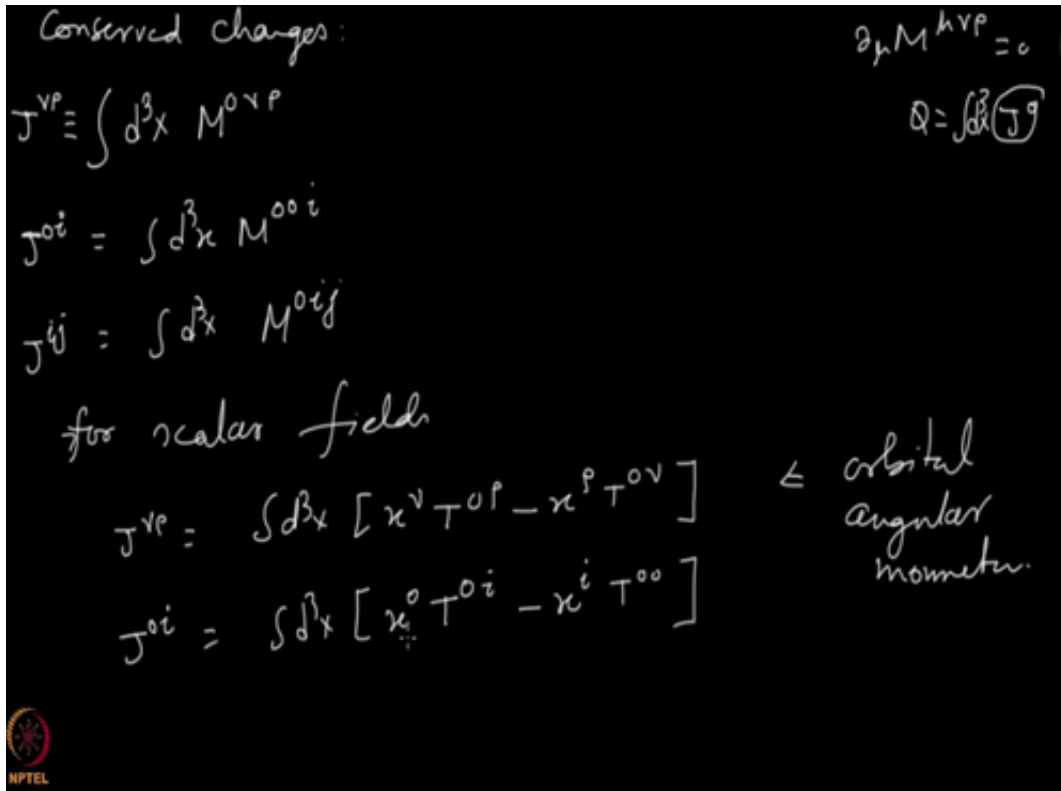 Conserved charges:
∂μ M^μνρ = 0
J^νρ ≡ ∫ d³x M^0νρ
Q = ∫d³x J⁰
J^0i = ∫ d³x M^00i
J^ij = ∫ d³x M^0ij
for scalar fields
J^νρ = ∫d³x [x^ν T^0ρ − x^ρ T^0ν] ≤ orbital
angular
momentum.
J^0i = ∫d³x [x^0 T^0i − x^i T^00]
NPTEL